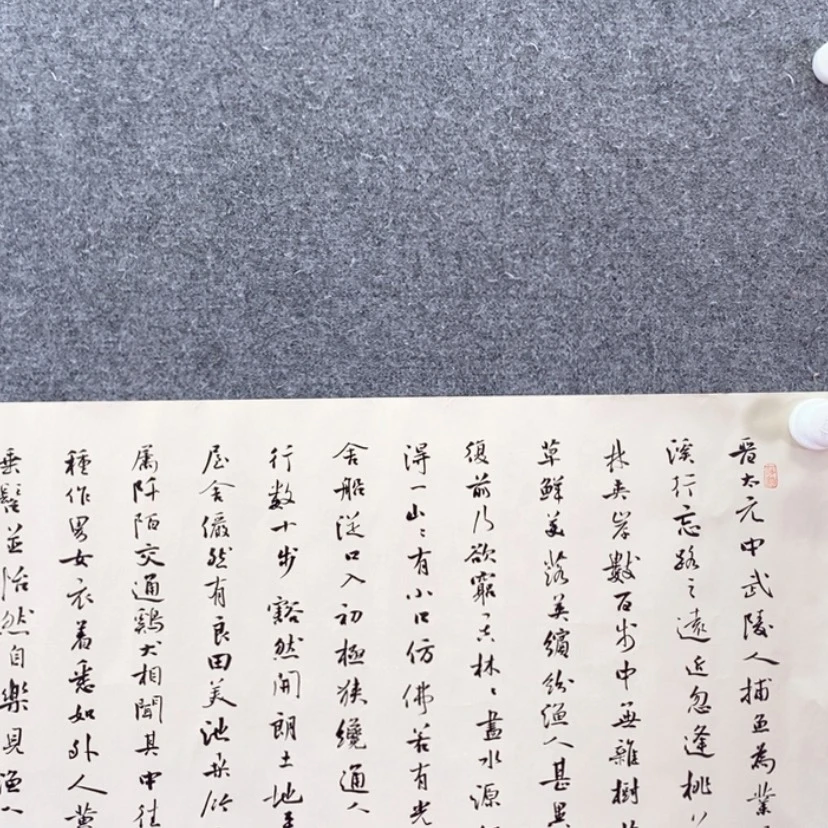 晋太元中武陵人捕魚為業
溪行忘路之遠近忽逢桃
林夾岸數百步中無雜樹
草鮮美落英繽紛漁人甚異
復前行欲窮其林〻盡水源
得一山〻有小口仿佛若有光
舍船從口入初極狹纔通人
行數十步豁然開朗土地
屋舍儼然有良田美池桑竹
屬阡陌交通鷄犬相聞其中往
種作男女衣着悉如外人黄
垂髫並怡然自樂見漁人